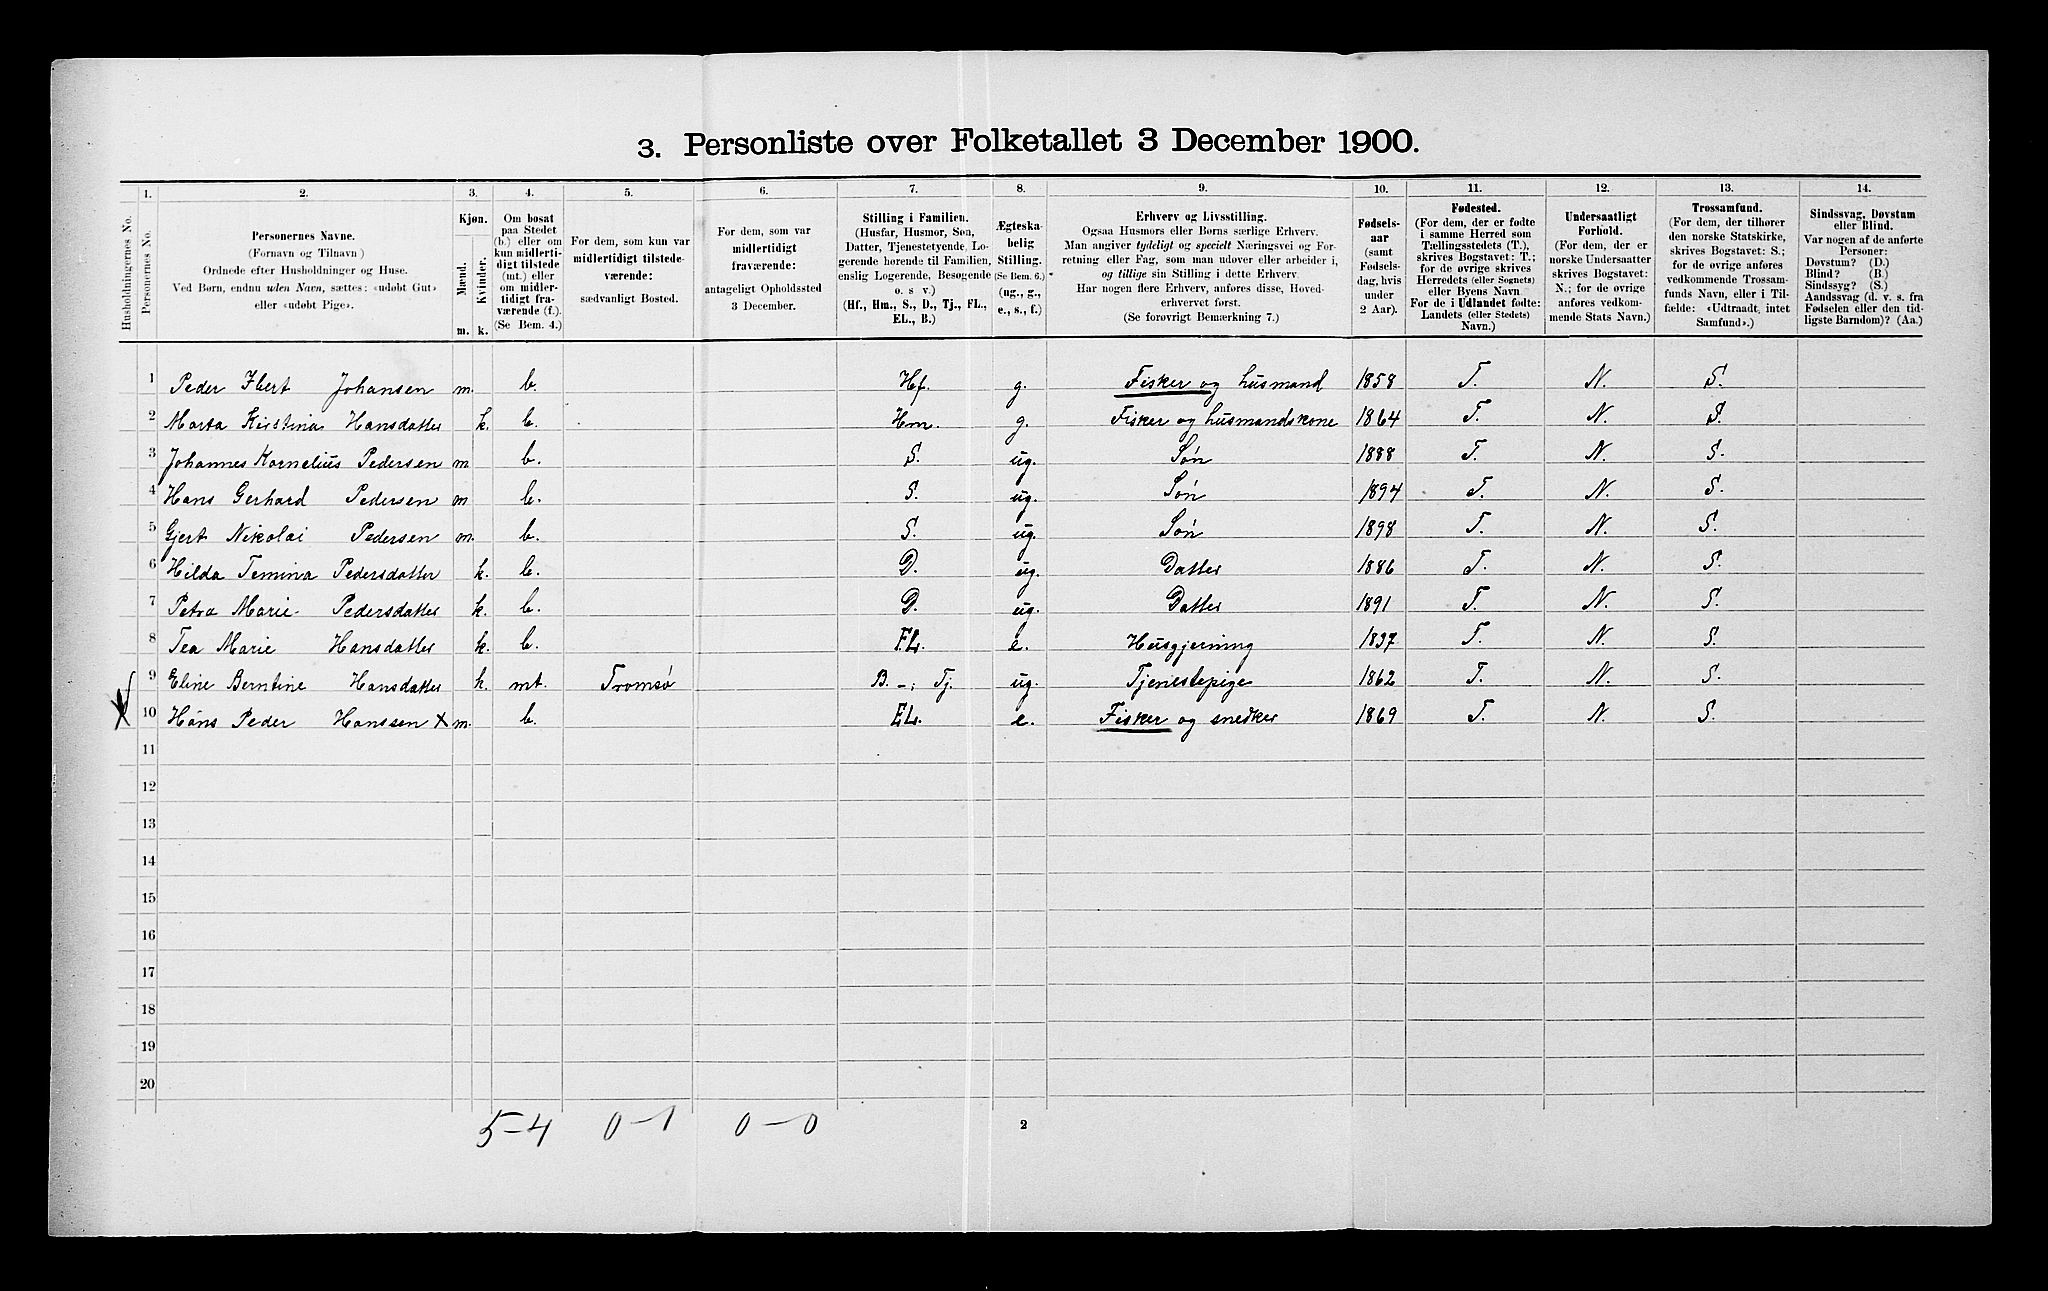 3. Personliste over Folketallet 3 December 1900.
1. 2. 3. 4. 5. 6. 7. 8. 9. 10. 11. 12. 13. 14.
Husholdningernes No.
Personernes No.
Personernes Navne.
(Fornavn og Tilnavn)
Ordnede efter Husholdninger og Huse.
Ved Børn, endnu uden Navn, sættes: «udøbt Gut»
eller «udøbt Pige».
Kjøn.
Mænd.
Kvinder.
m. k.
Om bosat
paa Stedet
(b.) eller om
kun midlerti-
digt tilstede
(mt.) eller
om midler-
tidigt fra-
værende (f.).
(Se Bem. 4.)
For dem, som kun var
midlertidigt tilstede-
værende:
sædvanligt Bosted.
For dem, som var
midlertidigt
fraværende:
antageligt Opholdssted
3 December.
Stilling i Familien.
(Husfar, Husmor, Søn,
Datter, Tjenestetyende, Lo-
gerende hørende til Familien,
enslig Logerende, Besøgende
o. s v.)
(Hf., Hm., S., D., Tj., FL.,
EL., B.)
Ægteska-
belig
Stilling.
(Se Bem. 6.)
(ug., g.,
e., s., f.)
Erhverv og Livsstilling.
Ogsaa Husmors eller Børns særlige Erhverv.
Man angiver tydeligt og specielt Næringsvei og For-
retning eller Fag, som man udøver eller arbeider i,
og tillige sin Stilling i dette Erhverv.
Har nogen flere Erhverv, anføres disse, Hoved-
erhvervet først.
(Se forøvrigt Bemærkning 7.)
Fødsels-
aar
(samt
Fødsels-
dag, hvis
under
2 Aar).
Fødested.
(For dem, der er fødte
i samme Herred som
Tællingsstedets (T.),
skrives Bogstavet: T.;
for de øvrige skrives
Herredets (eller Sognets)
eller Byens Navn
For de i Udlandet fødte:
Landets (eller Stedets)
Navn.)
Undersaatligt
Forhold.
(For dem, der er
norske Undersaatter
skrives Bogstavet:
N.; for de øvrige
anføres vedkom-
mende Stats Navn.)
Trossamfund.
(For dem, der tilhører
den norske Statskirke,
skrives Bogstavet: S.;
for de øvrige anføres
vedkommende Trossam-
funds Navn, eller i Til-
fælde: «Udtraadt, intet
Samfund».)
Sindssvag, Døvstum
eller Blind.
Var nogen af de anførte
Personer:
Døvstum? (D.)
Blind? (B.)
Sindssyg? (S.)
Aandssvag (d. v. s. fra
Fødselen eller den tid-
ligste Barndom)? (Aa.)
1 Peder Ibert Johansen m. b. Hf. g. Fisker og husmand 1858 T. N. S.
2 Marta Kirstina Hansdatter k. b. Hm. g. Fisker og husmandskone 1864 T. N. S.
3 Johannes Kornelius Pedersen m. b. S. ug. Søn 1888 T. N. S.
4 Hans Gerhard Pedersen m. b. S. ug. Søn 1894 T. N. S.
5 Gjert Nikolai Pedersen m. b. S. ug. Søn 1898 T. N. S.
6 Hilda Temina Pedersdatter k. b. D. ug. Datter 1886 T. N. S.
7 Petra Marie Pedersdatter k. b. D. ug. Datter 1891 T. N. S.
8 Tea Marie Hansdatter k. b. FL. e. Husgjerning 1837 T. N. S.
9 Eline Berntine Hansdatter k. mt. Tromsø B. -; Tj. ug. Tjenestepige 1862 T. N. S.
10 Hans Peder Hanssen x m. b. EL. e. Fisker og snedker 1869 T. N. S.
11
12
13
14
15
16
17
18
19
20
5-4 0-1 0-0 2